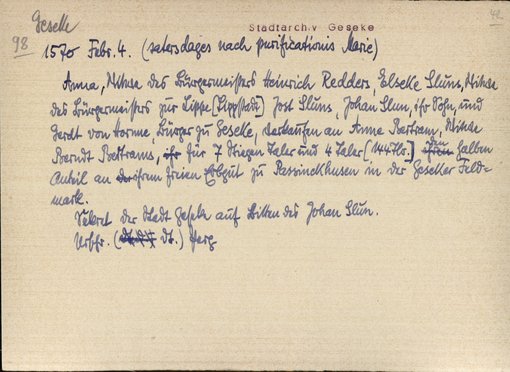 Geseke
98
Stadtarchiv Geseke
42
1570 Febr. 4. (satersdages nach purificationis Marie)
Anna, Witwe des Bürgermeisters Heinrich Redders, Elseke Sluns, Witwe
des Bürgermeisters zur Lippe [Lippstadt] Jost Sluns, Johan Slun, ihr Sohn, und
Gerdt von Horme, Bürger zu Geseke, verkaufen an Anne Bertram, Witwe
Berndt Bertrams, ihr für 7 Stiegen Taler und 4 Taler [144 Tlr.] halben
Anteil an freien Erbgut zu Passinckhusen in der Geseker Feld-
mark.
Sekret der Stadt Geseke auf Bitten des Johan Slun.
Urschr. (dt.) Perg